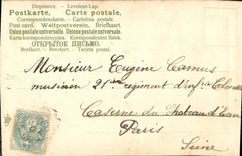 Dopisnice. — Levelező-Lap.
Postkarte. Carte postale.
Correspondenzkarte. — Cartolina postale.
Post card. Weltpostverein. Briefkaart.
Union postale universelle. Union postale universelle.
Karta korespondencyjna. — Korespondenční lístek.
ОТКРЫТОЕ ПИСЬМО.
Brefkort. — Brevkort. — Tarjeta postal.
Monsieur Eugène Camus
musicien 21e régiment d'infie Coloniale
Caserne du Chateau d'Eau
Paris
Seine